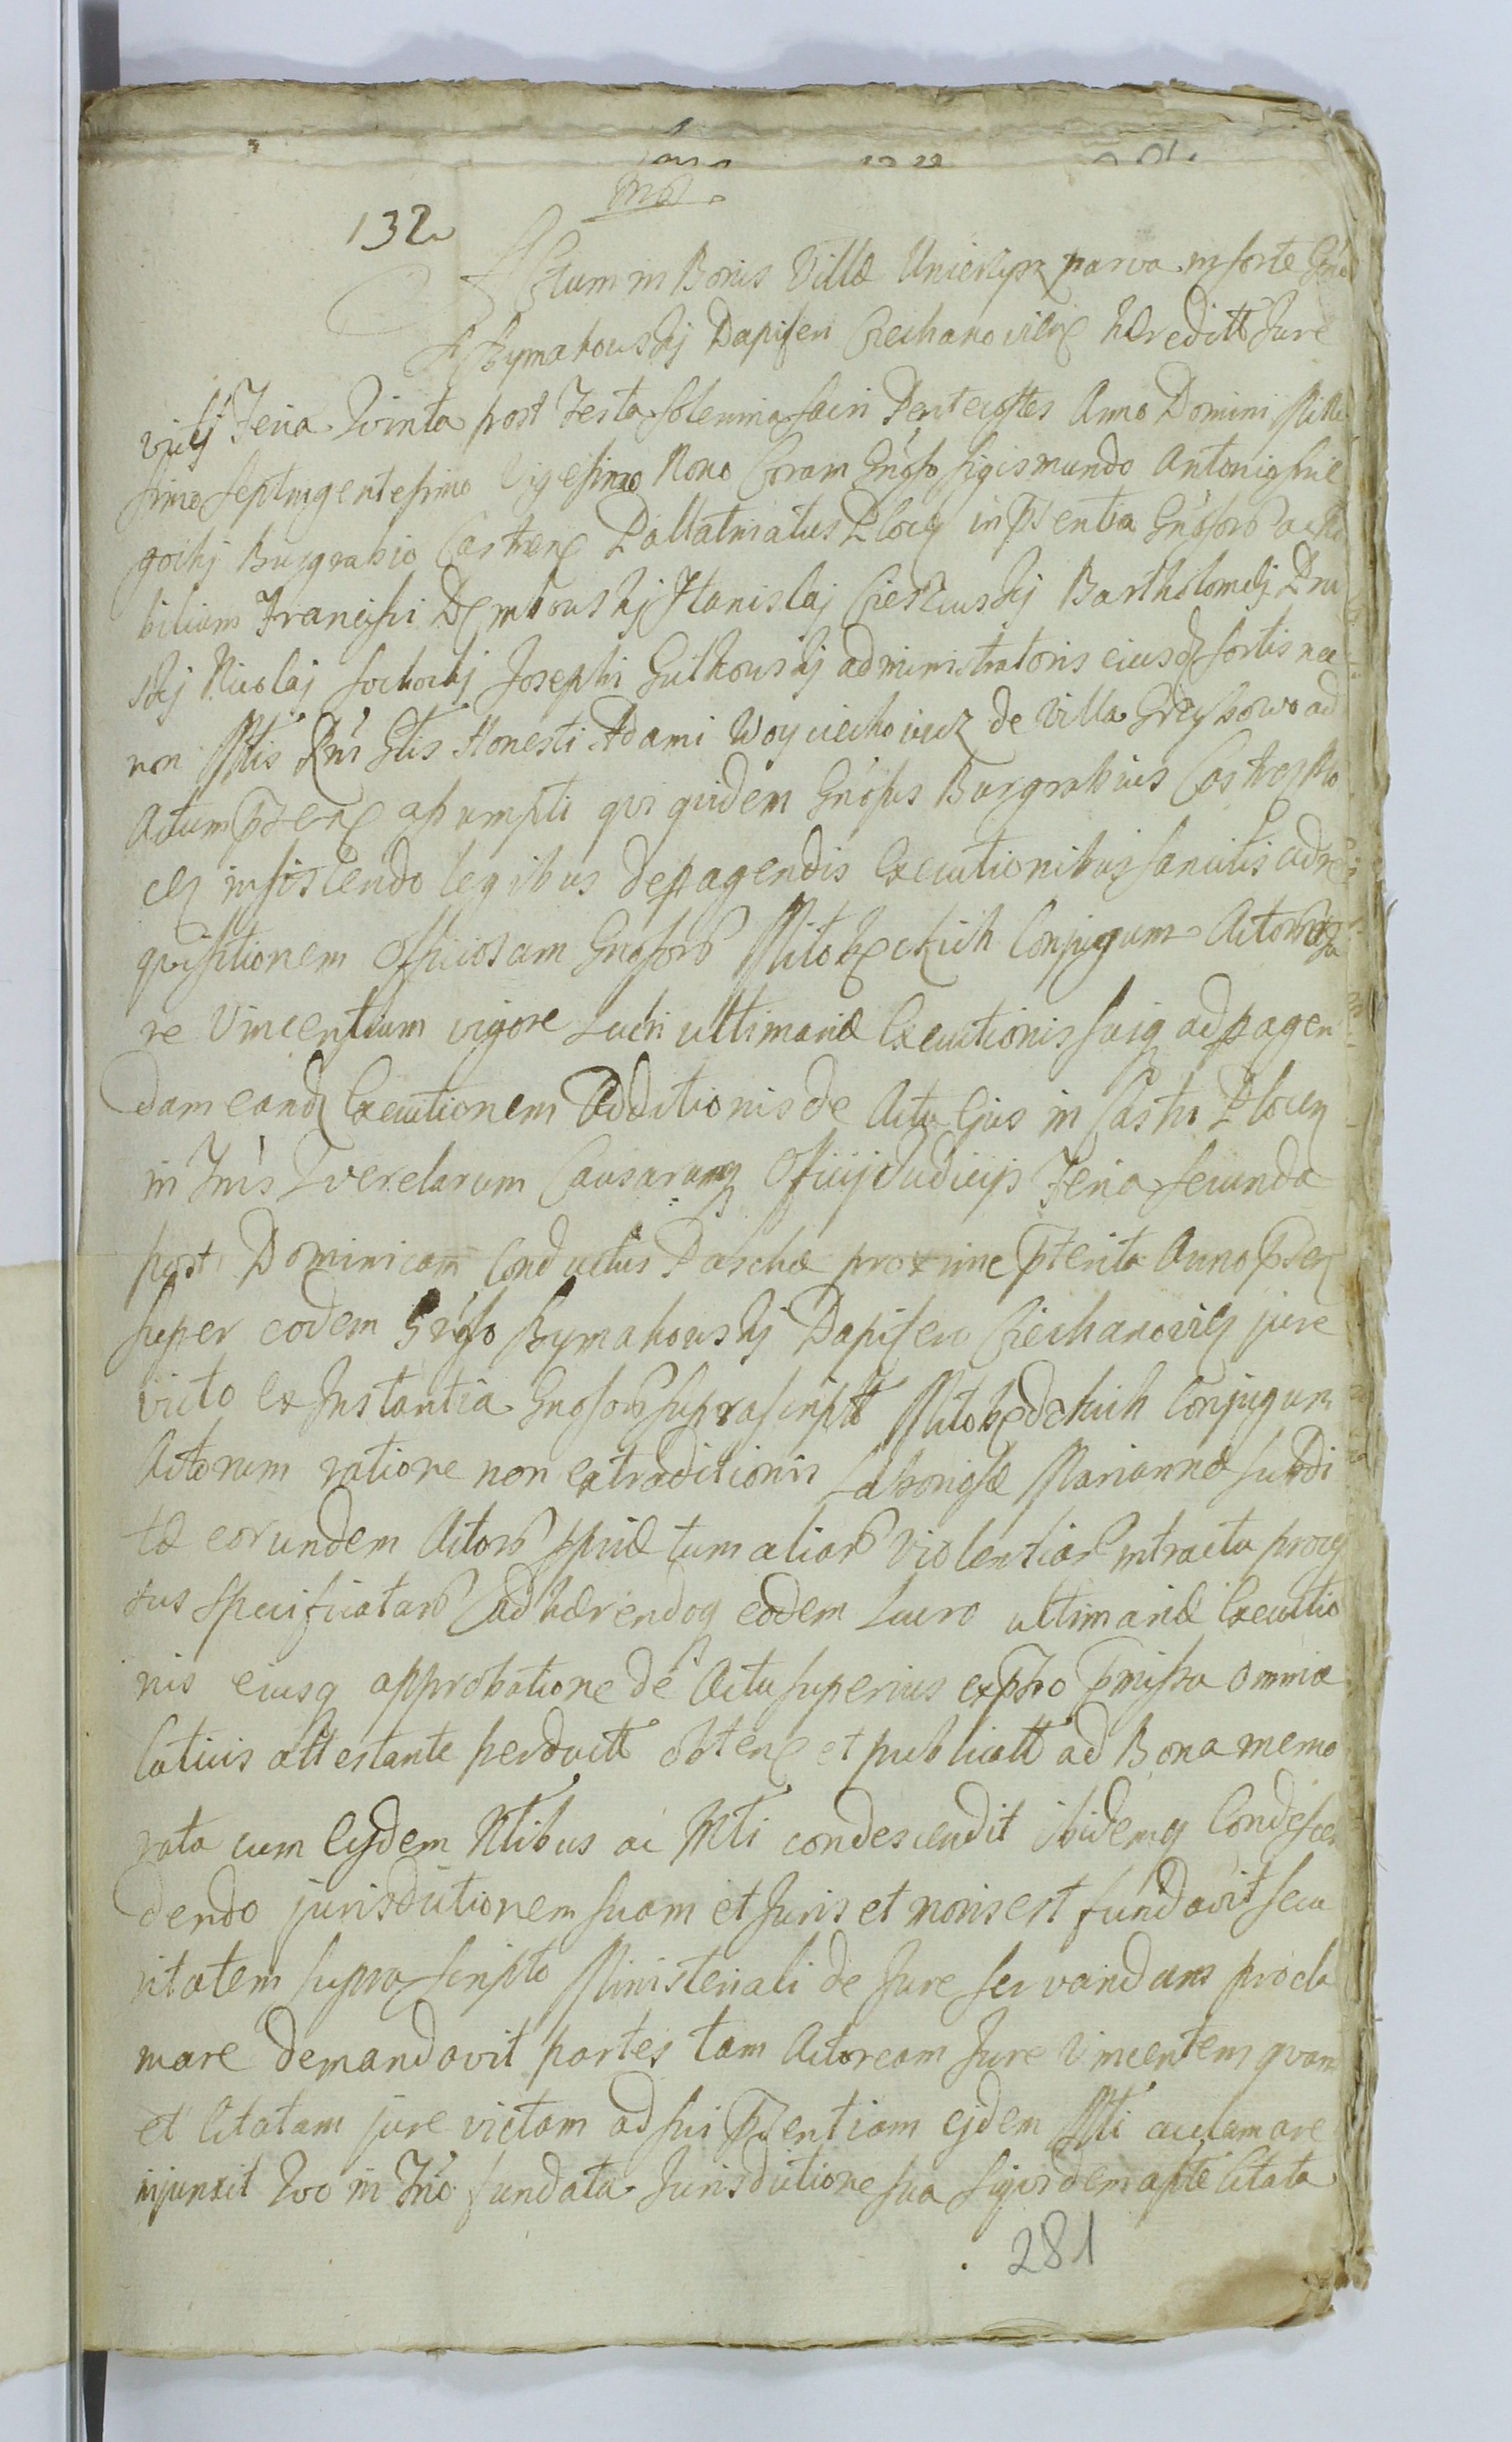 132
Actum in Bonis Villæ Unierzysz parva in sorte Gnosi
Rymakowskj Dapiferi Ciechanovien hæreditt Jure
victj Feria Qvinta post Festa solennia Sacri Pentecostes Anno Domini Mille
simo Septingentesimo Vigesimo Nono Coram Gnoso Sigismundo Antonio
gockj Burgrabio Castren Pallatinatus Plocen in Psentia Gnosorb ac No
bilium Francisci Dembowskj Stanislaj Bartholomei Dru
skj Nicolaj Sochockj Josephi Gutkowskj administratoris eiusd sortis nec
non Mtis Rni Gtis Honesti Adami Woyciechowicz de Villa Grzybowo ad
Actum Psen assumpti qui quidem Gnosus Burgrabius Castren Plo
cen insistendo legibus de pagendis Executionibus sancitis ad re
quisitionem Officiosam Gnosorb Conjugum Actorb Ju
re Vincentium vigore Lucri ultimariæ Executionis suiq ad pagen
dam eand Executionem Additionis de Actu Ejus in Castro Plocen
in Tnis Qverelarum Causarumq Officij Judicijs Feria Secunda
post Dominicam Conductus Paschæ proxime Pterita Anno Psen
super eodem Gnoso Rymakowskj Dapifero Ciechanovien jure
victo ex Instantia Gnosorb suprascriptt Conjugum
Actorum ratione non extraditionis Laboriosæ Mariannæ subdi
tæ eorundem Actorb Ppriæ tum aliarb violentiarb in tractu proces
sus specificatarb Adhærendoq eodem Lucro ultimariæ Executio
nis eiusq approbatione de Actu superius expsso Pmissa omnia
latius attestante perductt obten et publicatt ad Bona memo
rata cum Eisdem Nbilibus ac Mti condescendit ibidemq Condescen
dendo jurisdictionem suam et Juris et moris est fundavit secu
ritatem suprascripto Ministeriali de Jure servandam procla
mare demandavit partes tam Actoream Jure Vincentem qvam
et Citatam jure victam ad sui Psentiam ejdem Mti acclamare
injunxit Qvo in Tno fundata Jurisdictione sua siqvidem a Pte Citata
281